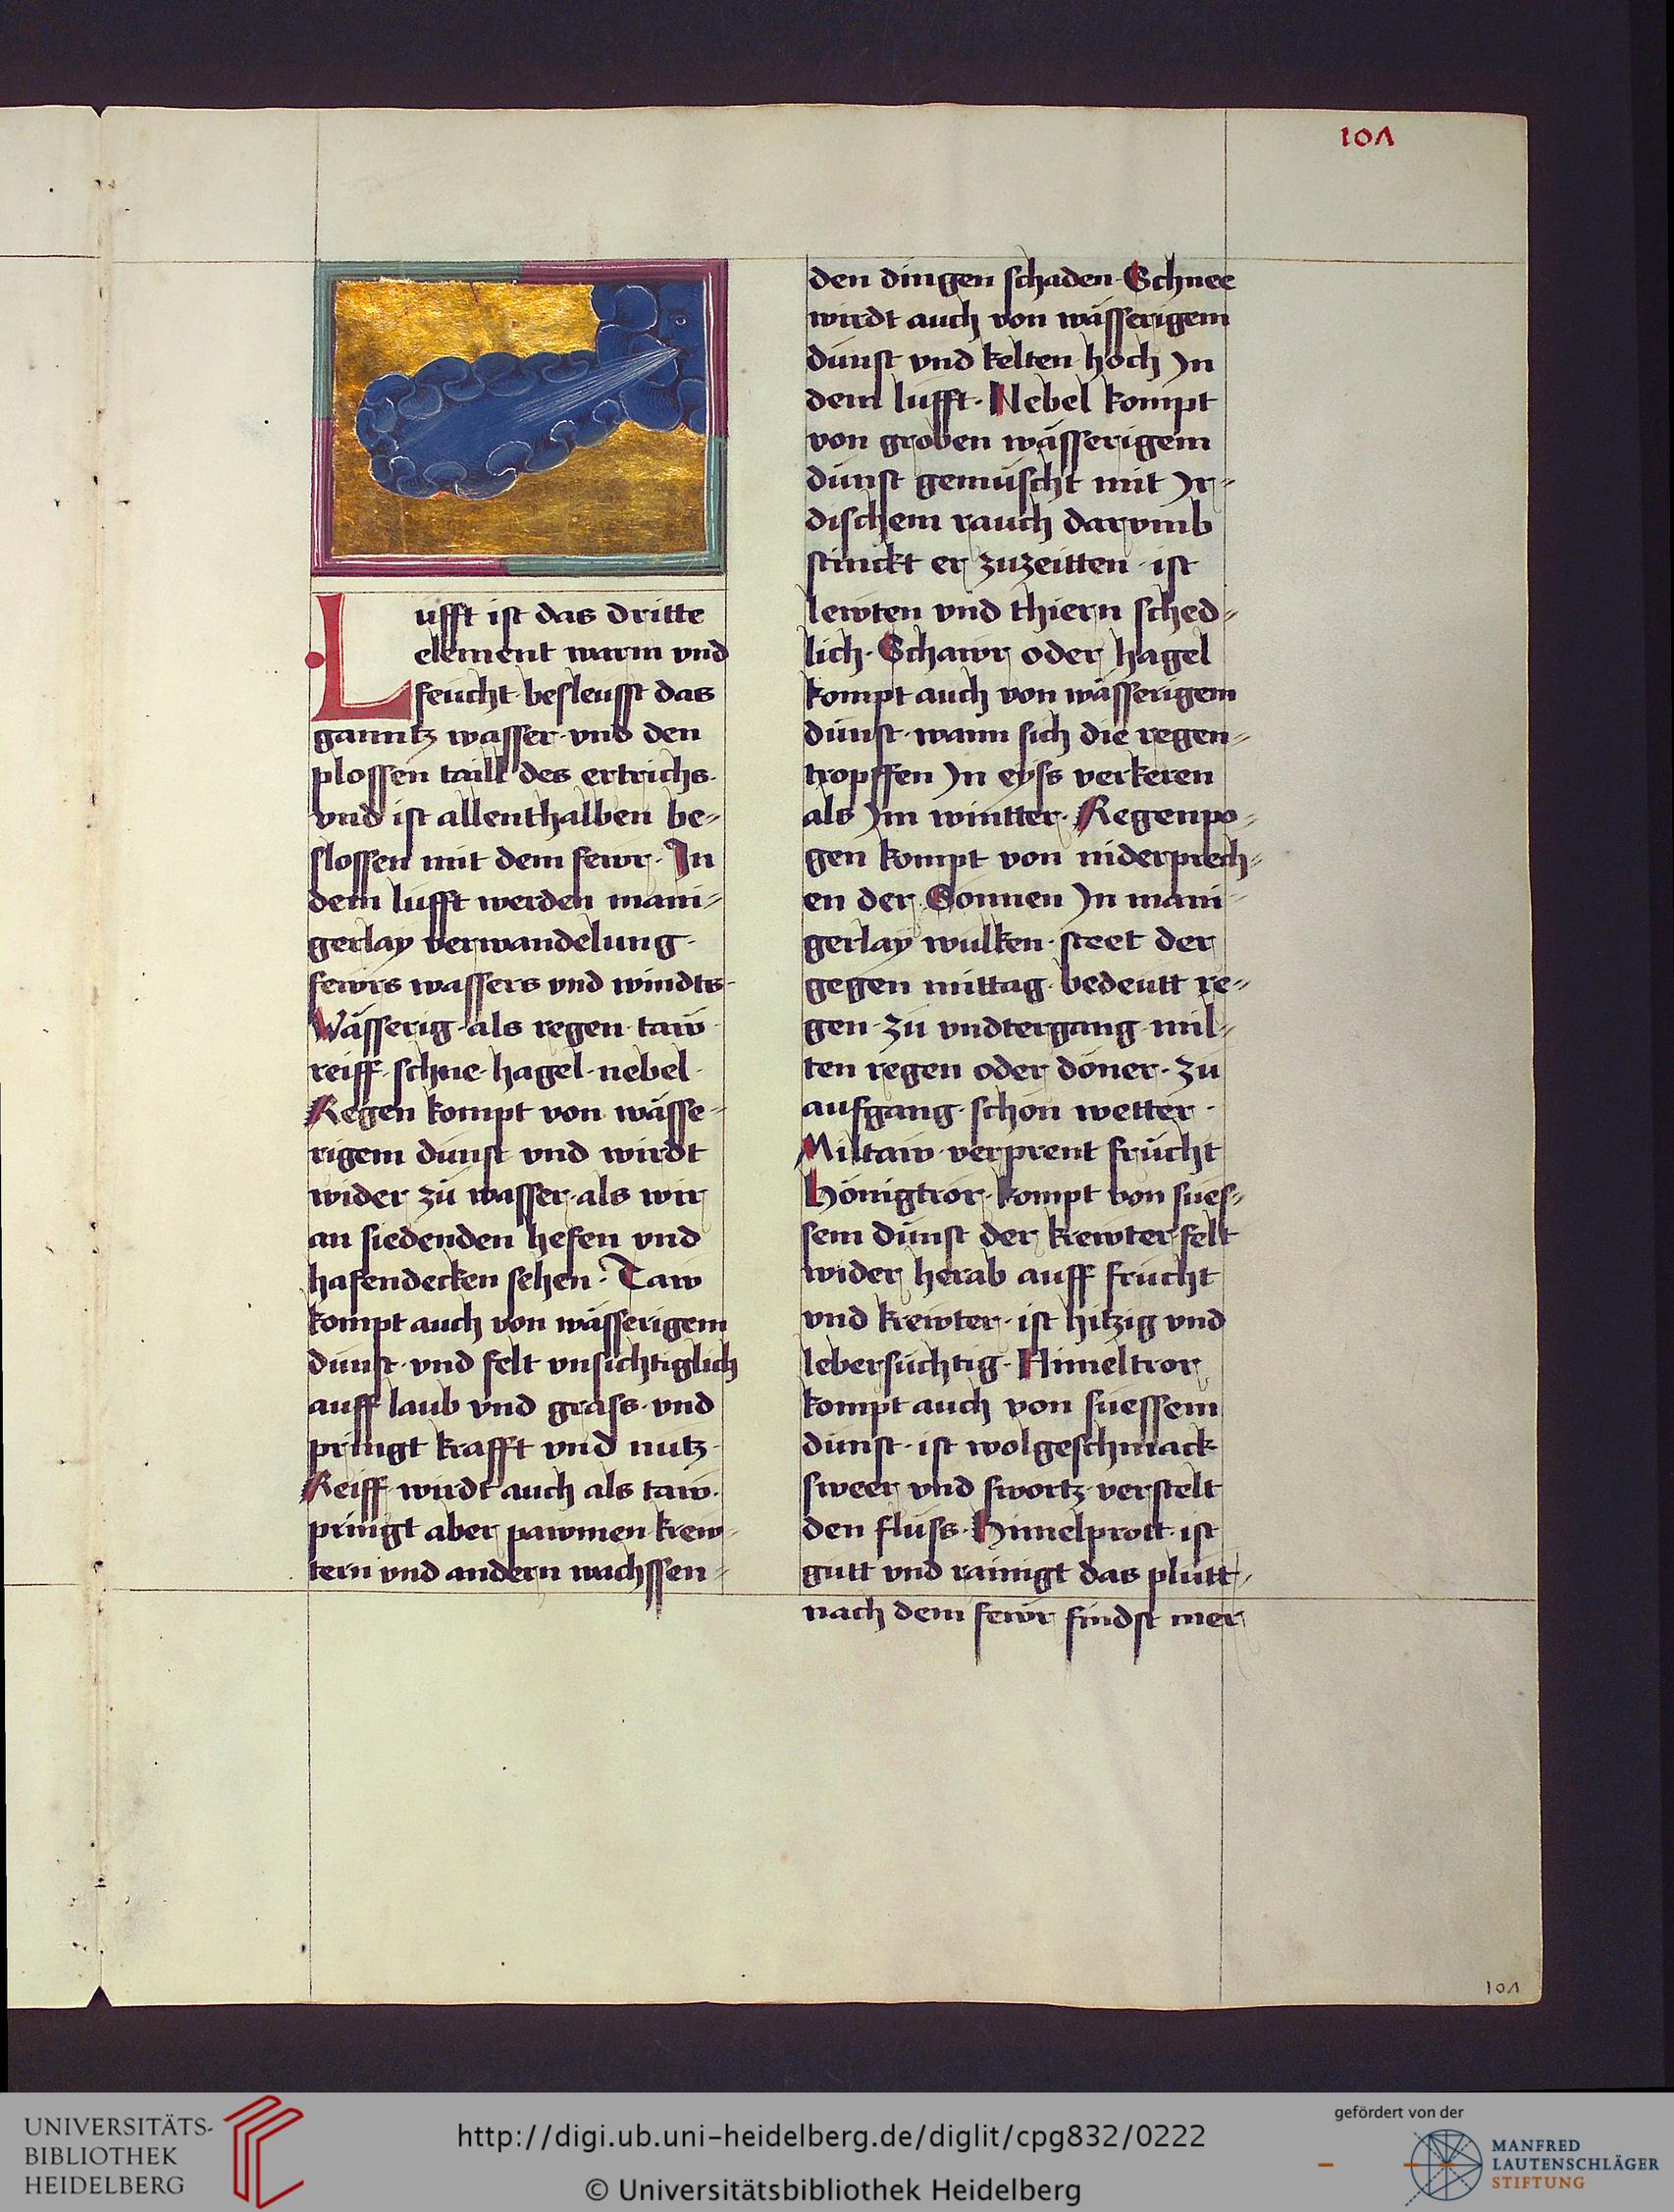 101
Lufft ist das dritte
element warm vnd
feücht besleüsst das
ganntz wasser vnd den
plossen taill des ertrichs.
vnd ist allenthalben be-
slossen mit dem fewr. In
dem lüfft werden mani-
gerlay verwandelung.
fewrs wassers vnd windts.
Wässerig als regen taẅ
reiff schne hagel nebel.
Regen kompt von wässe-
rigem dünst vnd wirdt
wider zü wasser als wir
an siedenden hefen vnd
hafendecken sehen. Taw
kompt auch von wässerigem
dünst vnd felt vnsichtiglich
auff laub vnd grass vnd
pringt krafft vnd nütz.
Reiff wirdt auch als taw.
pringt aber pawmen krew-
tern vnd andern wachssen-
den dingen schaden. Schnee
wirdt auch von wässerigem
dünst vnd kelten hoch Jn
dem lüfft. Nebel kompt
von groben wässerigem
dünst gemüscht mit Jr-
dischem rauch darvmb
stinckt er zuzeitten ist
lewten vnd thiern sched-
lich. Schawr oder hagel
kompt auch von wässerigem
dünst wann sich die regen-
tropffen Jn eyss verkeren
als Jm wintter. Regenpo-
gen kompt von niderprech-
en der Sonnen Jn mani-
gerlay wülken. steet der
gegen mittag bedeütt re-
gen zü vndtergang mil-
ten regen oder döner. zü
aufgang schön wetter.
Miltaw verprent frücht
Hönigtror kompt von sües-
sem dünst der krewter felt
wider herab auff frücht
vnd krewter ist hitzig vnd
lebersüchtig. Himeltror
kompt auch von süessem
dünst ist wolgeschmack
sweer vnd swortz verstelt
den flüss. Himelprott ist
gütt vnd rainigt das plütt
nach dem fewr findst mer
101
UNIVERSITÄTS-
BIBLIOTHEK
HEIDELBERG
http://digi.ub.uni-heidelberg.de/diglit/cpg832/0222
© Universitätsbibliothek Heidelberg
gefördert von der
MANFRED
LAUTENSCHLÄGER
STIFTUNG